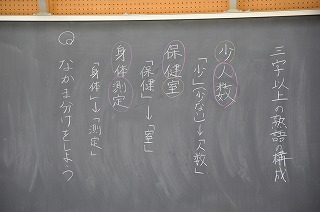 三字以上の熟語の構成
少人数
「少」(少ない)→「人数」
保健室
「保健」→「室」
身体測定
「身体」→「測定」
◎なかま分けをしよう